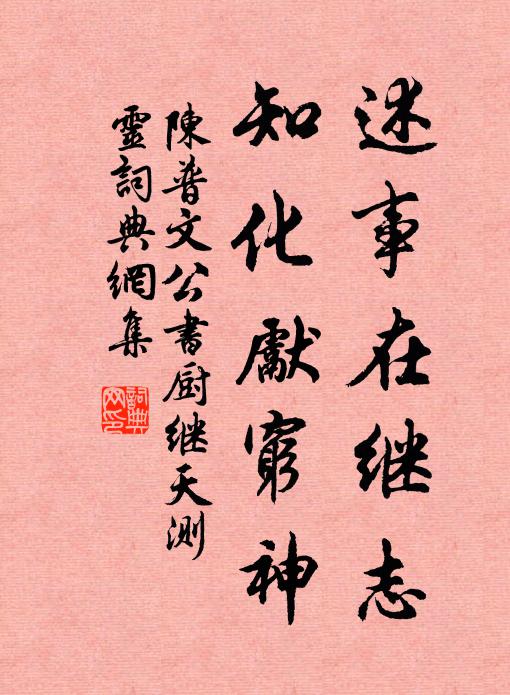 述事在继志
知化献窮神
陳普文公書厨继天測
靈詞典網集
詞典
网印